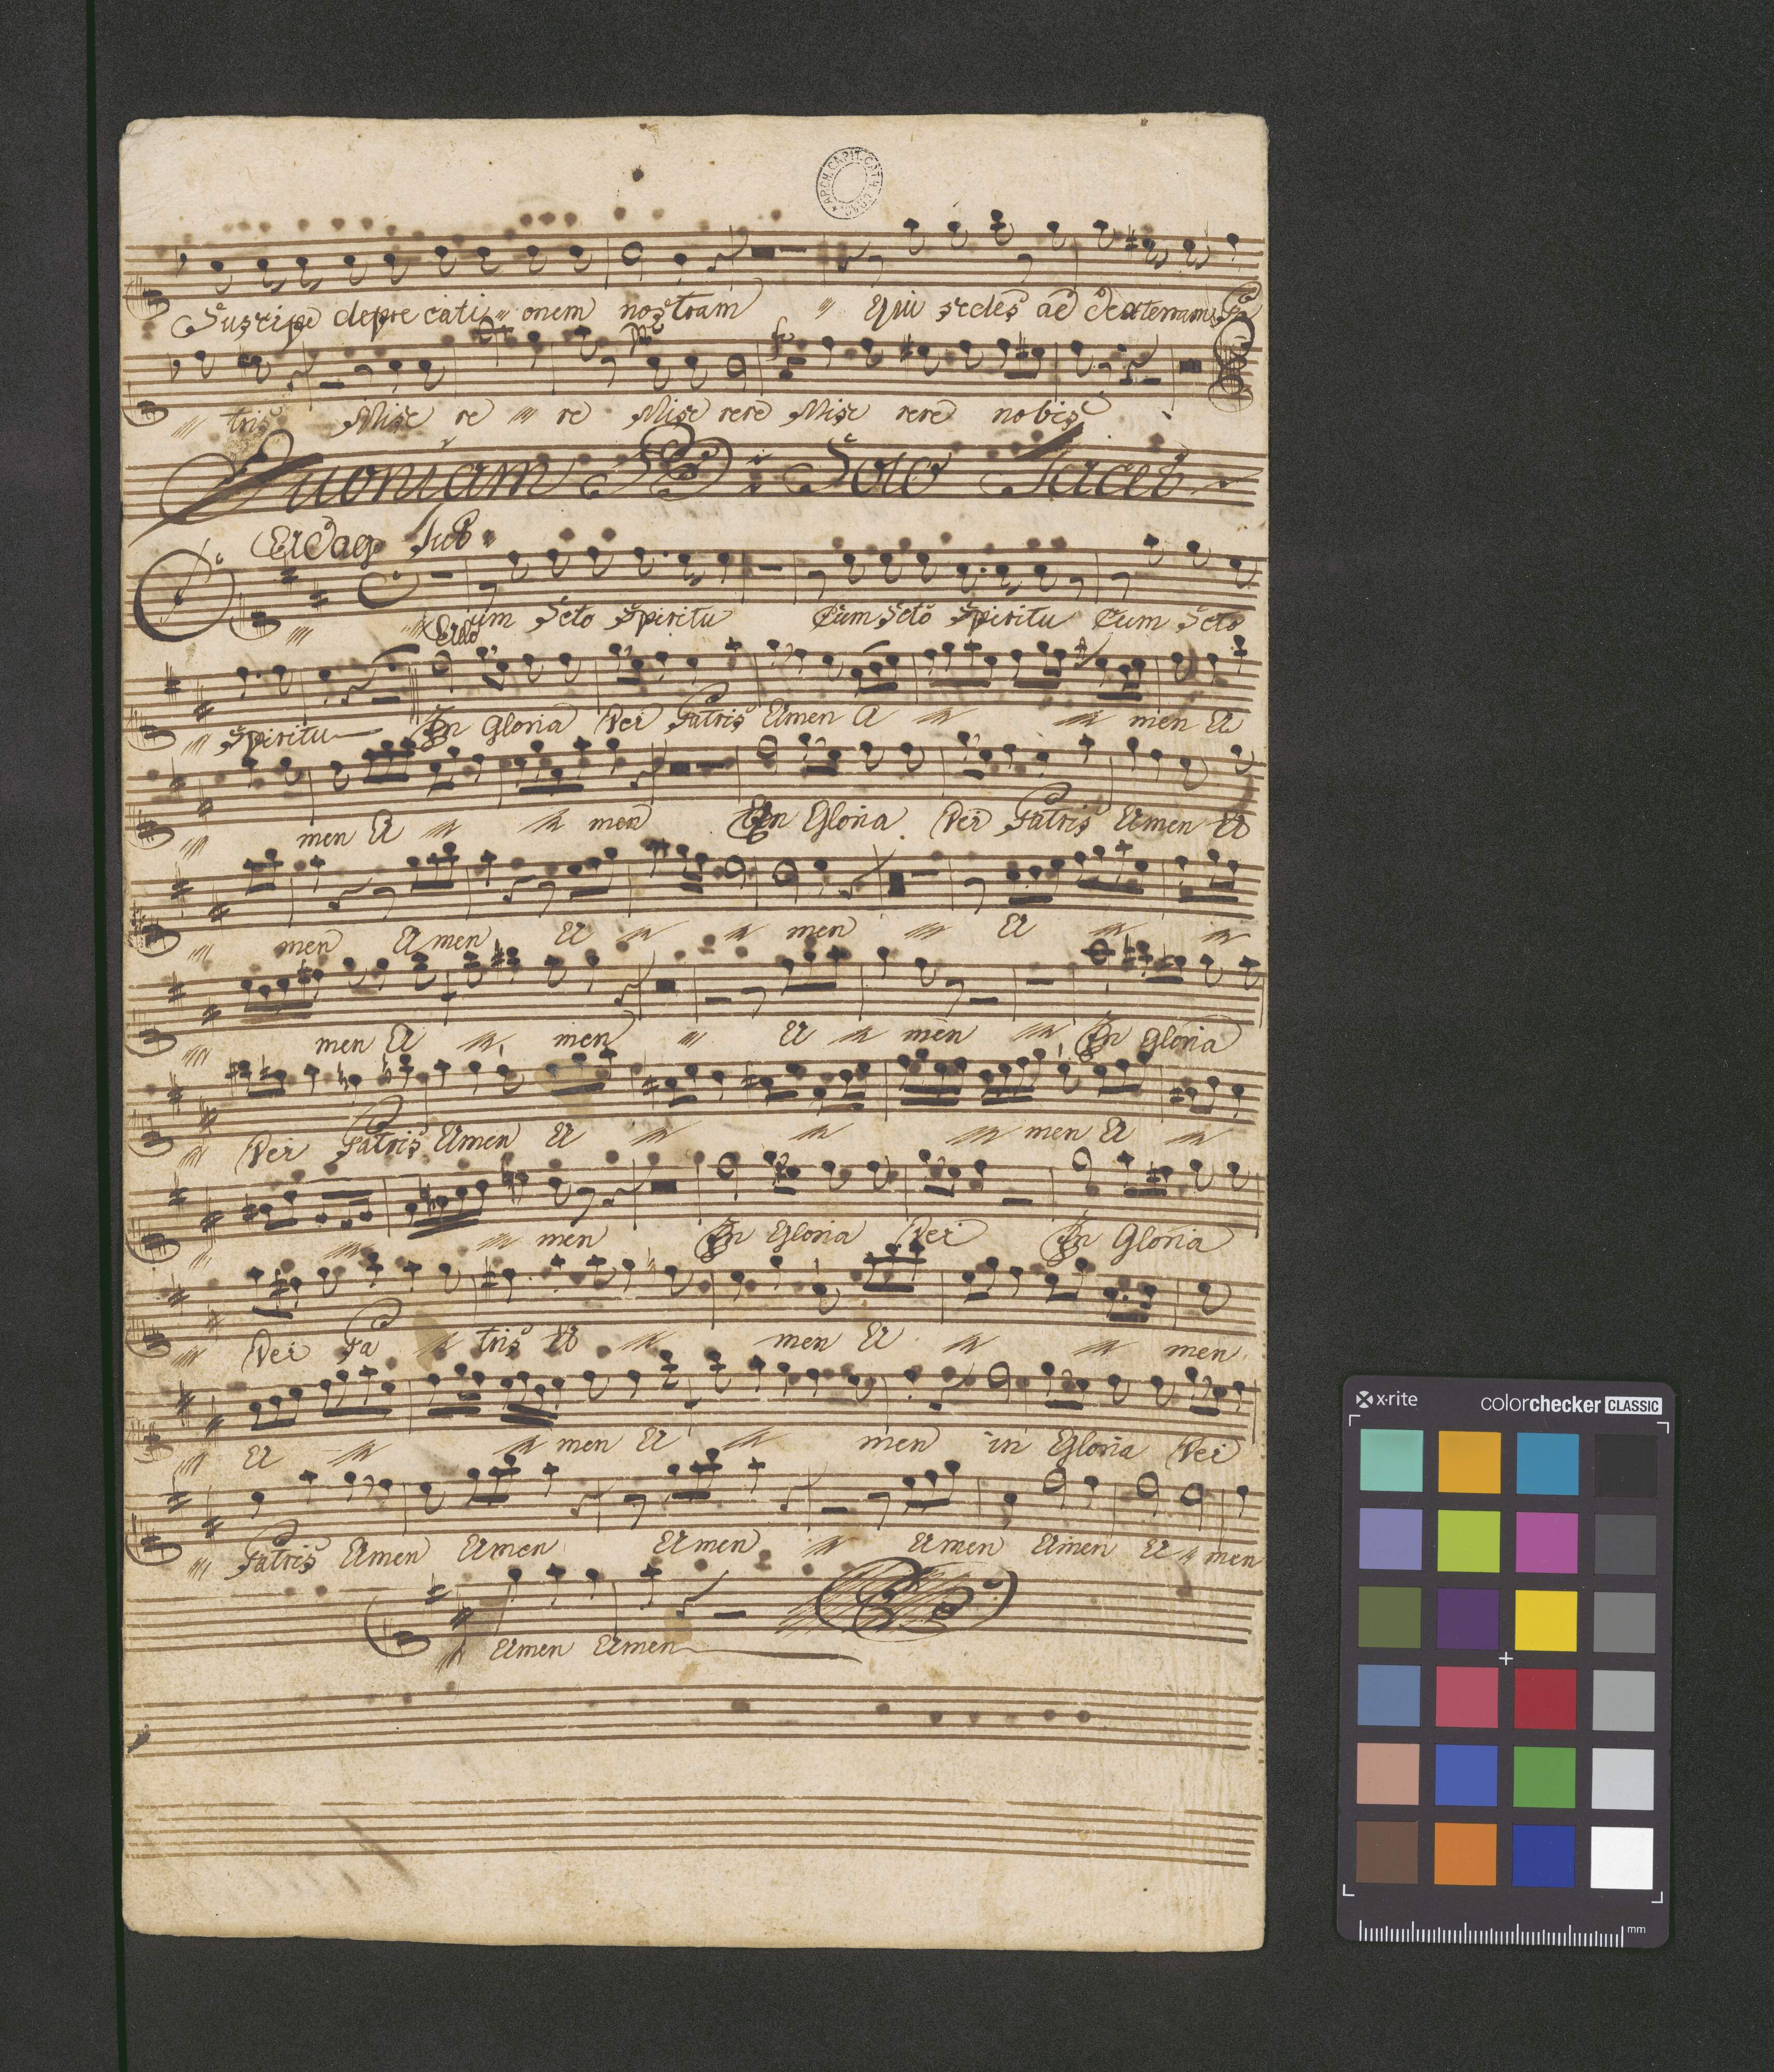 ARCH. CAPIT. CATH.
Suscipe depre cati onem nostram Qui sedes ad dexteram Pa
tris Mise re re Mise rere Mise rere nobis
Quoniam Solo Tacet
Adag
Cum Scto Spiritu Cum Scto Spiritu Cum Scto
Allo
Spiritu In Gloria Dei Patris Amen A men A
men A men In Gloria Dei Patris Amen A
men Amen A men A
men A men A men In Gloria
Dei Patris Amen A men A
men In Gloria Dei In Gloria
Dei Pa tris A men A men
A men A men in Gloria Dei
Patris Amen Amen Amen Amen Amen A men
Amen Amen
x-rite colorchecker CLASSIC
mm